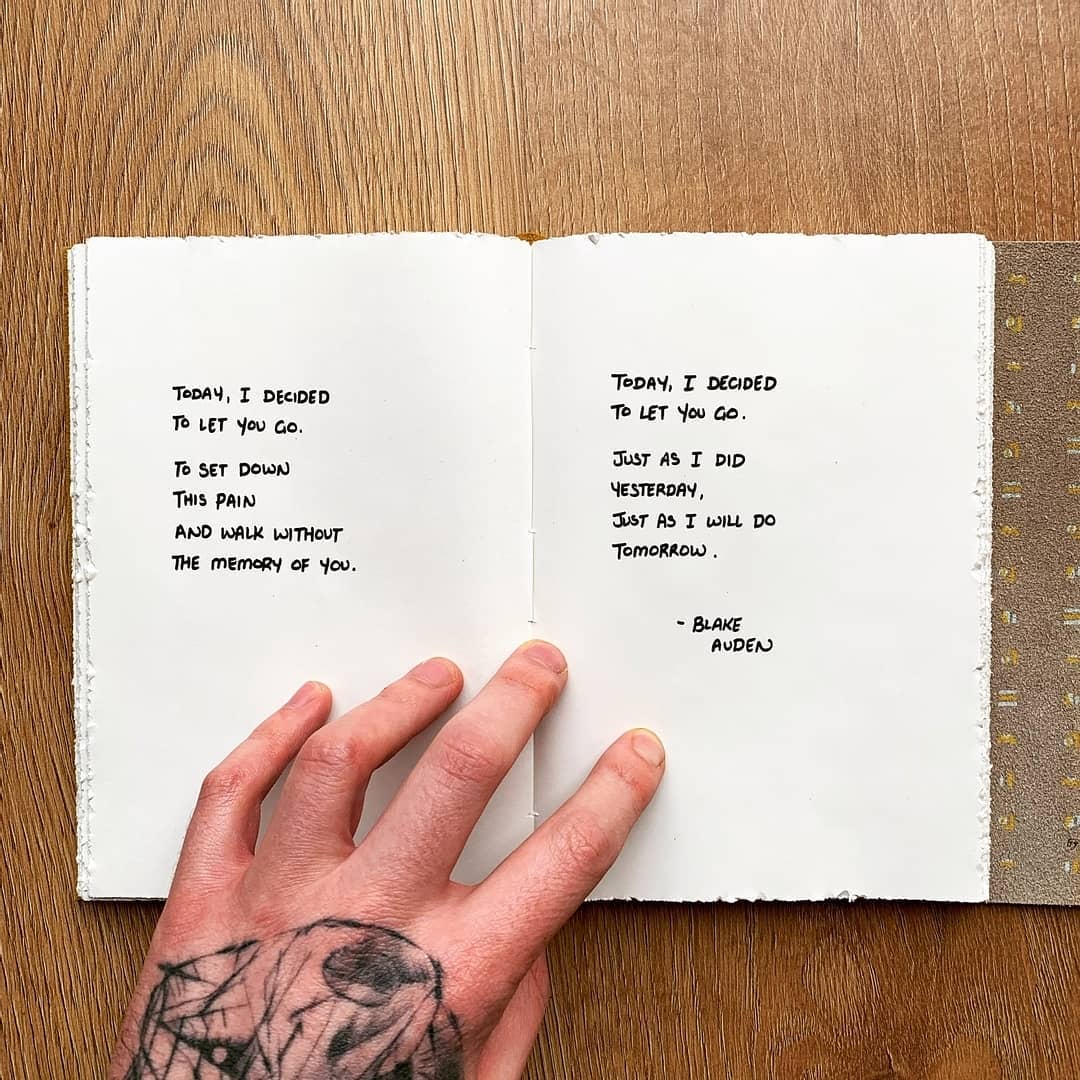 TODAY, I DECIDED
TO LET YOU GO.
TO SET DOWN
THIS PAIN
AND WALK WITHOUT
THE MEMORY OF YOU.
TODAY, I DECIDED
TO LET YOU GO.
JUST AS I DID
YESTERDAY,
JUST AS I WILL DO
TOMORROW.
- BLAKE
AUDEN